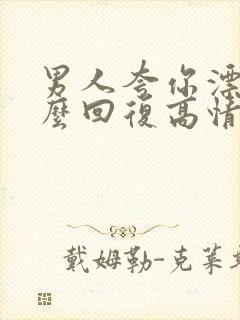 男人夸你漂
麼回復高情
戴姆勒-克萊